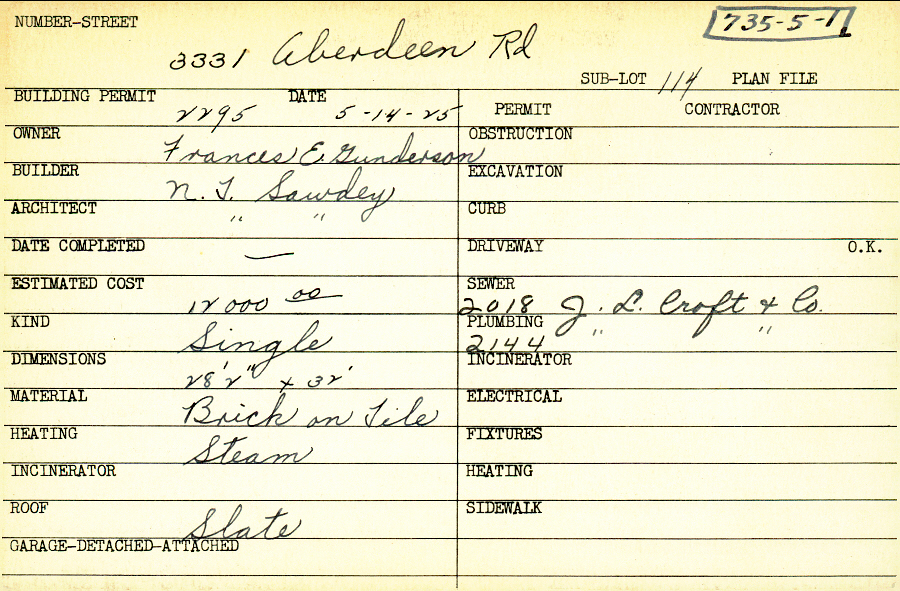 NUMBER-STREET 735-5-1
3331 Aberdeen Rd
SUB-LOT 114 PLAN FILE
BUILDING PERMIT 2295 DATE 5-14-25
PERMIT CONTRACTOR
OWNER Frances E. Gunderson
OBSTRUCTION
BUILDER N. T. Sawdey
EXCAVATION
ARCHITECT " "
CURB
DATE COMPLETED —
DRIVEWAY O.K.
ESTIMATED COST 12000 00
SEWER 2018 J. L. Croft & Co.
KIND Single
PLUMBING 2144 " "
DIMENSIONS 28'2" x 32'
INCINERATOR
MATERIAL Brick on Tile
ELECTRICAL
HEATING Steam
FIXTURES
INCINERATOR
HEATING
ROOF Slate
SIDEWALK
GARAGE-DETACHED-ATTACHED